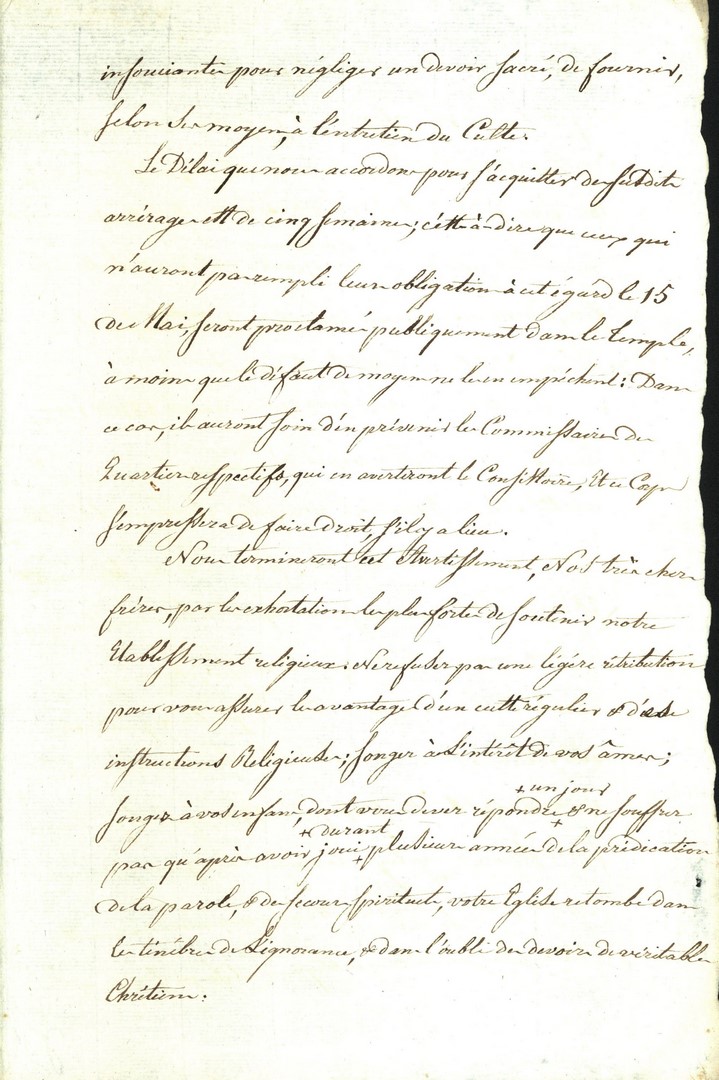 insouciantes pour négliger un devoir sacré, de fournir,
selon ses moyens, à l'entretien du Culte.
Le Délai que nous accordons pour s'acquitter des susdits
arrérages est de cinq semaines; c'est-à-dire que ceux qui
n'auront pas rempli leurs obligations à cet égard le 15
de Mai, seront proclamés publiquement dans le Temple,
à moins que le défaut de moyens ne les en empêchent: Dans
ce cas, ils auront soin d'en prévenir les Commissaires de
Quartiers respectifs, qui en avertiront le Consistoire, Et ce Corps
s'empressera de faire droit, s'il y a lieu.
Nous termineront cet Avertissement, Nos très chers
frères, par les exhortations les plus fortes de soutenir notre
Etablissement religieux. Ne refusez pas une légère rétribution
pour vous assurer les avantages d'un culte régulier & des
instructions Religieuses; songez à l'intérêt de vos âmes;
+ un jour
songez à vos enfans, dont vous devez répondre + & ne souffrez
+ durant
pas qu'après avoir joui + plusieurs années de la prédication
de la parole, & des secours spirituels, votre Eglise retombe dans
les ténèbres de l'ignorance, & dans l'oubli des devoirs de véritables
Chrétiens.